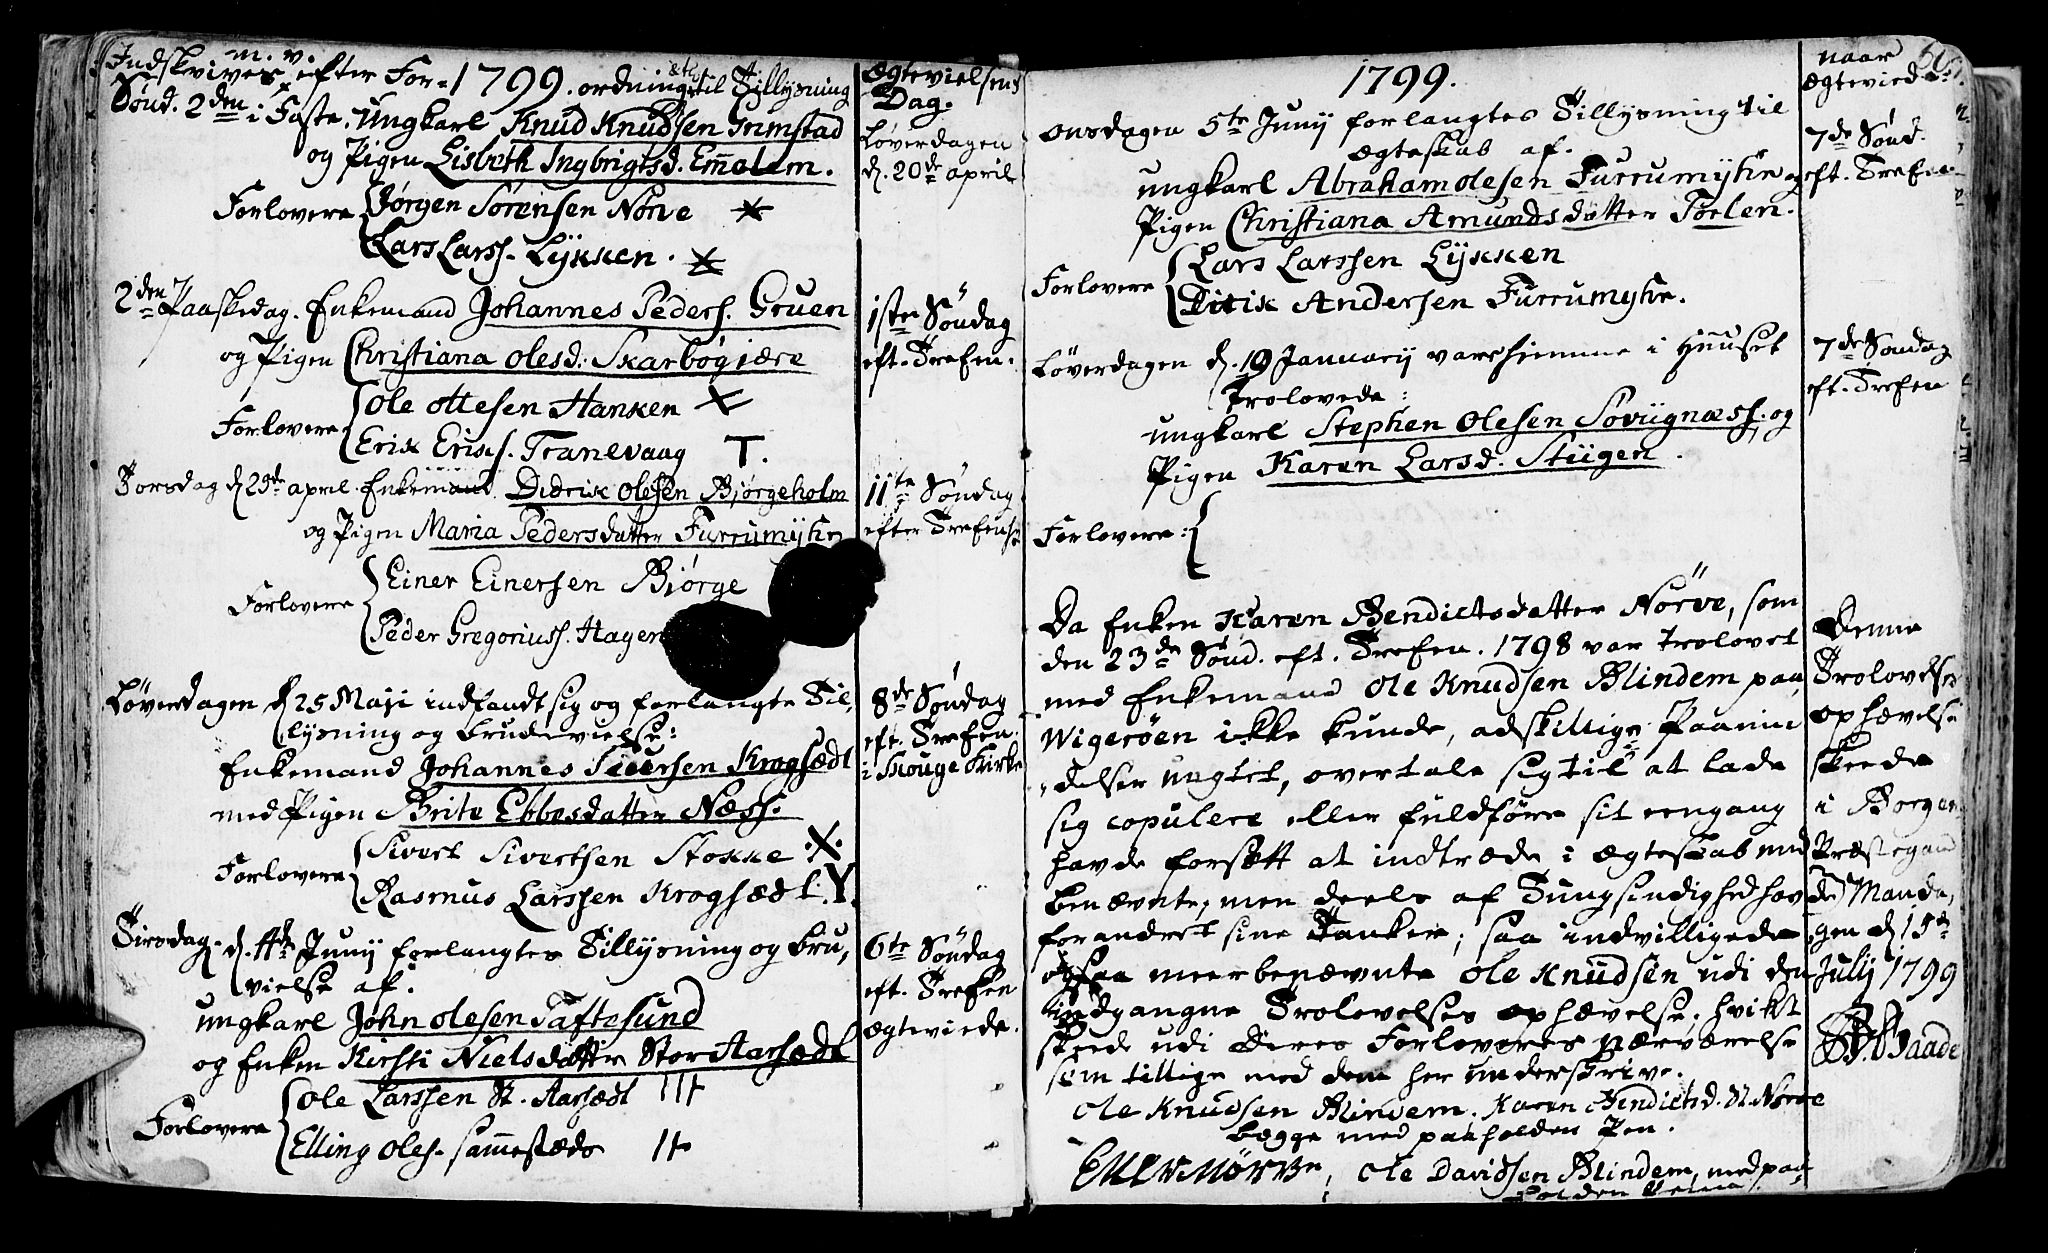 m. v.
Indskrives efter For= 1799. ordning til Tillysning
Sönd. 2den i Faste. Ungkarl Knud Knudsen Grimstad
og Pigen Lisbeth Ingbrigtsd. Emelem.
Forlovere Jörgen Sörensen Nörve
Lars Larss. Lÿkken.
2den Paaskedag. Enkemand Johannes Peders. Gruen
og Pigen Christiana Olesd. Skarbögjære
Forlovere Ole Ottesen Hanken
Erik Erikss. Tranevaag T.
Torsdag d. 25de april. Enkemand Didrik Olesen Bjørgeholm
og Pigen Maria Pedersdatter Furrumÿhr
Forlovere Einer Einersen Bjørge
Peder Gregoriuss. Hagen
Löverdagen d. 25 Maji indfandt sig og forlangte Til,
lysning og Brudevielse:
Enkemand Johannes Siversen Krogsædt
med Pigen Brite Ebbesdatter Næss.
Forlovere Sivert Sivertsen Stokke
Rasmus Larssen Krogsædt.
Tirsdag d. 4de Junij forlangtes Tillysning og Bru,
vielse af.
Ungkarl John Olesen Taftesund
og Enken Kirsti Nielsdatter Stor Aarsædt
Forlovere Ole Larssen St. Aarsædt
Elling Oles. sammestæds
Ægtevielsens
Dag.
Löverdagen
d. 20de april
1ste Söndag
eft. Trefen.
11te Söndag
efter Trefens
8de Söndag
eft. Trefen.
i Skouge Kirke
6te Söndag
eft. Trefen
ægteviede.
1799.
Onsdagen 5te Junij forlangtes Tillysning til
Ægteskab af.
Ungkarl Abraham Olesen Furrumÿhr og
Pigen Christiana Amundsdatter Toelen.
Forlovere Lars Larssen Lÿkken
Didrik Andersen Furrumyhr.
Löverdagen d. 19 Januarij vare hiemme i Huuset
Trolovede:
Ungkarl Stephen Olesen Sovügnæss. og
Pigen Karen Larsd. Stügen.
Forlovere:
Da Enken Karen Bendictsdatter Nörve, som
den 23de Sönd. eft. Trefen. 1798 var trolovet
med Enkemand Ole Knudsen Blindem paa
Wigeröen ikke kunde, adskillige Paamin
delser uagtet, overtale sig til at lade
sig copulere eller fuldföre sit eengang
havde forsætt at indtræde i Ægteskab med
benævnte, men deels af Tungsindighed hav
forandret sine Tanker; saa indvilligede
ogsaa meerbenævnte Ole Knudsen udi den
indgangne Trolovelses ophævelse. hvilket
skeede udi Deres Forloveres nærværelse
som tillige med dem her underskrive.
Ole Knudsen Blindem. Karen Bendictsd. N. Nörve
begge med paaholden Pen.
Ole Davidsen Blindem, med paa
holden Pen
naar
Ægteviede
7de Sönd.
eft. Trefen.
7de Söndag
eft. Trefen
Denne
Trolovelses
ophævelse
skeede
i Borgen
Præstegaard
d. Manda,
gen d. 15de
Julij 1799